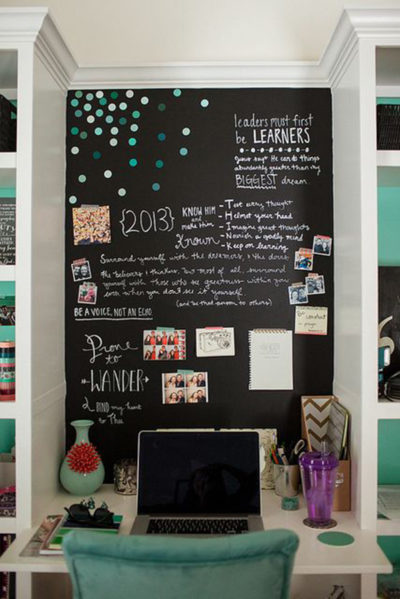 leaders must first
be LEARNERS
Jesus says He can do things
abundantly greater than my
BIGGEST dream.
{2013}
KNOW HIM
and
make Him
Known
- Test every thought
- Helmet your head
- Imagine great thoughts
- Nourish a godly mind
- Keep on learning
Surround yourself with the dreamers, & the doers
the believers & thinkers, but most of all, surround
yourself with those who see greatness within you
even when you don't see it yourself.
(and be that person to others)
BE A VOICE, NOT AN ECHO
Prone
to
WANDER
& BIND my heart
to Thee